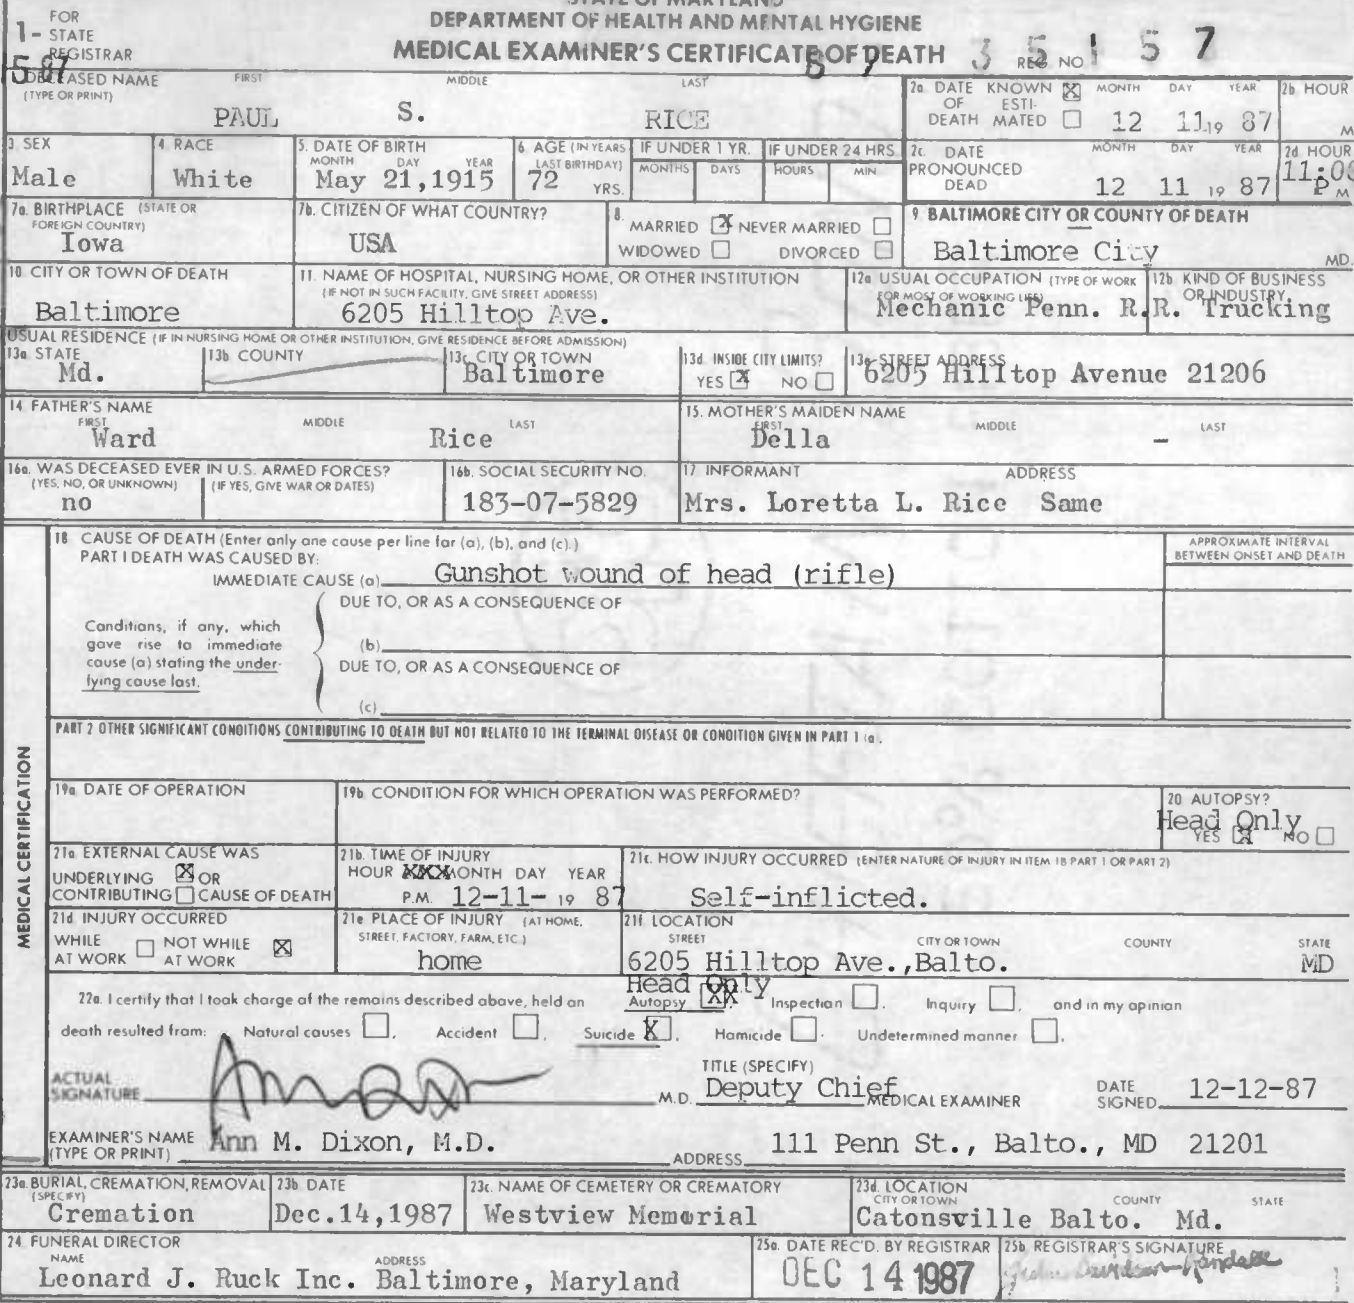 STATE OF MARYLAND
DEPARTMENT OF HEALTH AND MENTAL HYGIENE
MEDICAL EXAMINER'S CERTIFICATE OF DEATH
1- FOR STATE REGISTRAR
REG NO
87 35157
DECEASED NAME (TYPE OR PRINT) FIRST MIDDLE LAST
PAUL S. RICE
2a. DATE OF DEATH KNOWN ☒ ESTIMATED ☐ MONTH DAY YEAR
12 11 19 87
2b HOUR M
3. SEX
Male
4. RACE
White
5. DATE OF BIRTH MONTH DAY YEAR
May 21,1915
6. AGE (IN YEARS LAST BIRTHDAY)
72 YRS.
IF UNDER 1 YR. MONTHS DAYS
IF UNDER 24 HRS. HOURS MIN
2c. DATE PRONOUNCED DEAD MONTH DAY YEAR
12 11 19 87
2d HOUR
P M
7a. BIRTHPLACE (STATE OR FOREIGN COUNTRY)
Iowa
7b. CITIZEN OF WHAT COUNTRY?
USA
8. MARRIED ☒ NEVER MARRIED ☐
WIDOWED ☐ DIVORCED ☐
9. BALTIMORE CITY OR COUNTY OF DEATH
Baltimore City MD.
10. CITY OR TOWN OF DEATH
Baltimore
11. NAME OF HOSPITAL, NURSING HOME, OR OTHER INSTITUTION
(IF NOT IN SUCH FACILITY, GIVE STREET ADDRESS)
6205 Hilltop Ave.
12a USUAL OCCUPATION (TYPE OF WORK FOR MOST OF WORKING LIFE)
12b KIND OF BUSINESS OR INDUSTRY
Mechanic Penn. R.R. Trucking
USUAL RESIDENCE (IF IN NURSING HOME OR OTHER INSTITUTION, GIVE RESIDENCE BEFORE ADMISSION)
13a STATE
Md.
13b COUNTY
13c CITY OR TOWN
Baltimore
13d. INSIDE CITY LIMITS?
YES ☒ NO ☐
13e STREET ADDRESS
6205 Hilltop Avenue 21206
14. FATHER'S NAME FIRST MIDDLE LAST
Ward Rice
15. MOTHER'S MAIDEN NAME FIRST MIDDLE LAST
Della -
16a. WAS DECEASED EVER IN U.S. ARMED FORCES?
(YES, NO, OR UNKNOWN) (IF YES, GIVE WAR OR DATES)
no
16b. SOCIAL SECURITY NO.
183-07-5829
17 INFORMANT ADDRESS
Mrs. Loretta L. Rice Same
MEDICAL CERTIFICATION
18 CAUSE OF DEATH (Enter only one cause per line for (a), (b), and (c).)
PART I DEATH WAS CAUSED BY:
APPROXIMATE INTERVAL BETWEEN ONSET AND DEATH
IMMEDIATE CAUSE (a) Gunshot wound of head (rifle)
DUE TO, OR AS A CONSEQUENCE OF
Conditions, if any, which gave rise to immediate cause (a) stating the underlying cause last.
(b)
DUE TO, OR AS A CONSEQUENCE OF
(c)
PART 2 OTHER SIGNIFICANT CONDITIONS CONTRIBUTING TO DEATH BUT NOT RELATED TO THE TERMINAL DISEASE OR CONDITION GIVEN IN PART 1 (a).
19a DATE OF OPERATION
19b CONDITION FOR WHICH OPERATION WAS PERFORMED?
20 AUTOPSY?
Head Only
YES ☒ NO ☐
21a EXTERNAL CAUSE WAS
UNDERLYING ☒ OR
CONTRIBUTING ☐ CAUSE OF DEATH
21b. TIME OF INJURY
HOUR XXX MONTH DAY YEAR
P.M. 12-11- 19 87
21c. HOW INJURY OCCURRED (ENTER NATURE OF INJURY IN ITEM 18 PART 1 OR PART 2)
Self-inflicted.
21d INJURY OCCURRED
WHILE AT WORK ☐ NOT WHILE AT WORK ☒
21e PLACE OF INJURY (AT HOME, STREET, FACTORY, FARM, ETC.)
home
21f LOCATION
STREET CITY OR TOWN COUNTY STATE
6205 Hilltop Ave.,Balto. MD
Head Only
22a. I certify that I took charge of the remains described above, held an Autopsy ☒, Inspection ☐, Inquiry ☐, and in my opinion
death resulted from: Natural causes ☐, Accident ☐, Suicide ☒, Homicide ☐, Undetermined manner ☐.
ACTUAL SIGNATURE M.D.
TITLE (SPECIFY)
Deputy Chief MEDICAL EXAMINER
DATE SIGNED 12-12-87
EXAMINER'S NAME (TYPE OR PRINT) Ann M. Dixon, M.D.
ADDRESS 111 Penn St., Balto., MD 21201
23a. BURIAL, CREMATION, REMOVAL (SPECIFY)
Cremation
23b. DATE
Dec.14,1987
23c. NAME OF CEMETERY OR CREMATORY
Westview Memorial
23d. LOCATION CITY OR TOWN COUNTY STATE
Catonsville Balto. Md.
24 FUNERAL DIRECTOR
NAME ADDRESS
Leonard J. Ruck Inc. Baltimore, Maryland
25a. DATE REC'D. BY REGISTRAR
DEC 14 1987
25b. REGISTRAR'S SIGNATURE